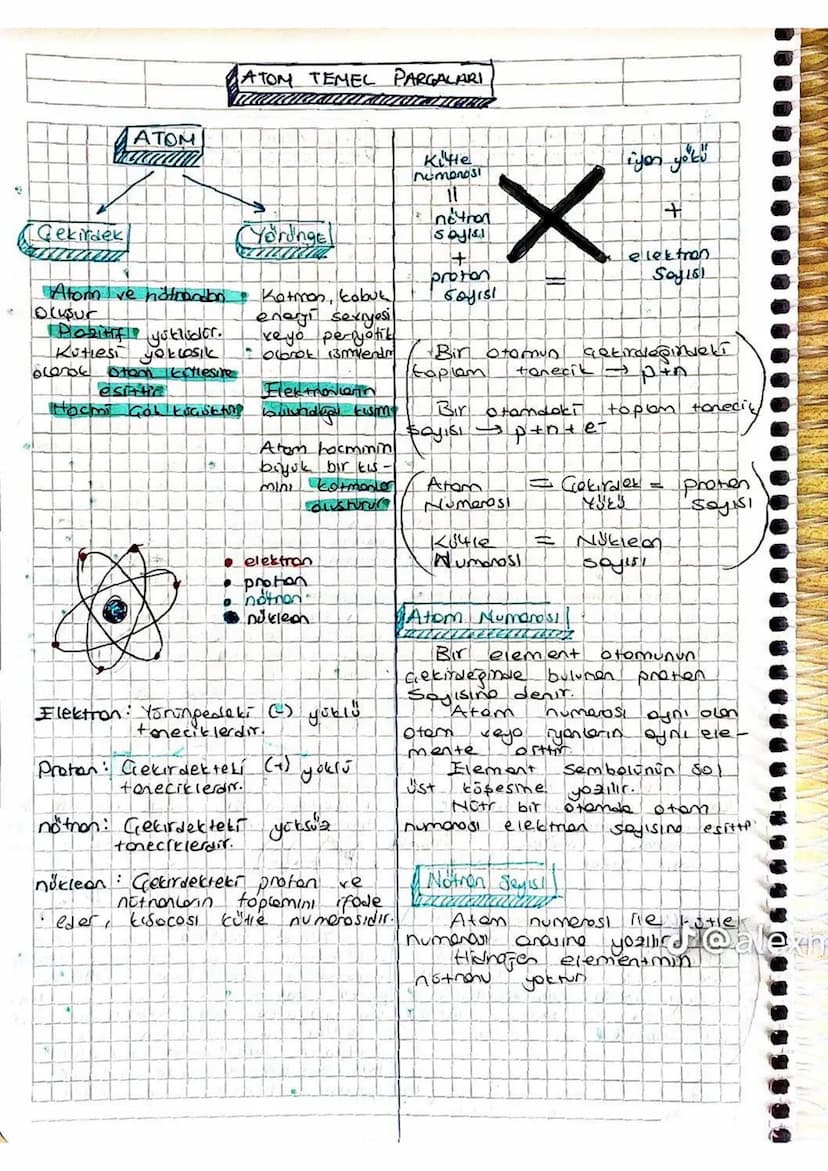 ATOM TEMEL PARÇALARI
ATOM
Çekirdek
Yörünge
Atom ve nötrondan
oluşur
Pozitif yüklüdür.
Kütlesi yaklaşık
olarak atom kütlesine
eşittir
Hacmi çok küçüktür
Katman, kabuk
enerji seviyesi
veya periyotik
olarak isimlendirir
Elektronların
bulunduğu kısım
Atom hacminin
büyük bir kıs-
mını katmanlar
oluşturur
elektron
proton
nötron
nüklean
Elektron: Yörüngedeki (-) yüklü
taneciklerdir.
Proton: Çekirdekteki (+) yüklü
taneciklerdir.
nötron: Çekirdekteki yüksüz
taneciklerdir.
nüklean: Çekirdekteki proton ve
nötronların toplamını ifade
eder, kısacası kütle numarasıdır.
Kütle
numarası
=
nötron
sayısı
+
proton
sayısı
=
iyon yükü
+
elektron
sayısı
Bir atomun çekirdeğindeki
toplam tanecik → p+n
Bir atomdaki toplam tanecik
sayısı → p+n+e-
Atom = Çekirdek = proton
Numarası Yükü sayısı
Kütle = Nüklean
Numarası sayısı
Atom Numarası
Bir element atomunun
çekirdeğinde bulunan proton
sayısına denir.
Atom numarası aynı olan
atom veya iyonların aynı ele-
mente aittir.
Element sembolünün sol
üst köşesine yazılır.
Nötr bir atomda atom
numarası elektron sayısına eşittir
Nötron Sayısı
Atom numarası ile kütle
numarası arasına yazılır
Hidrojen elementinin
nötronu yoktur
@alexn